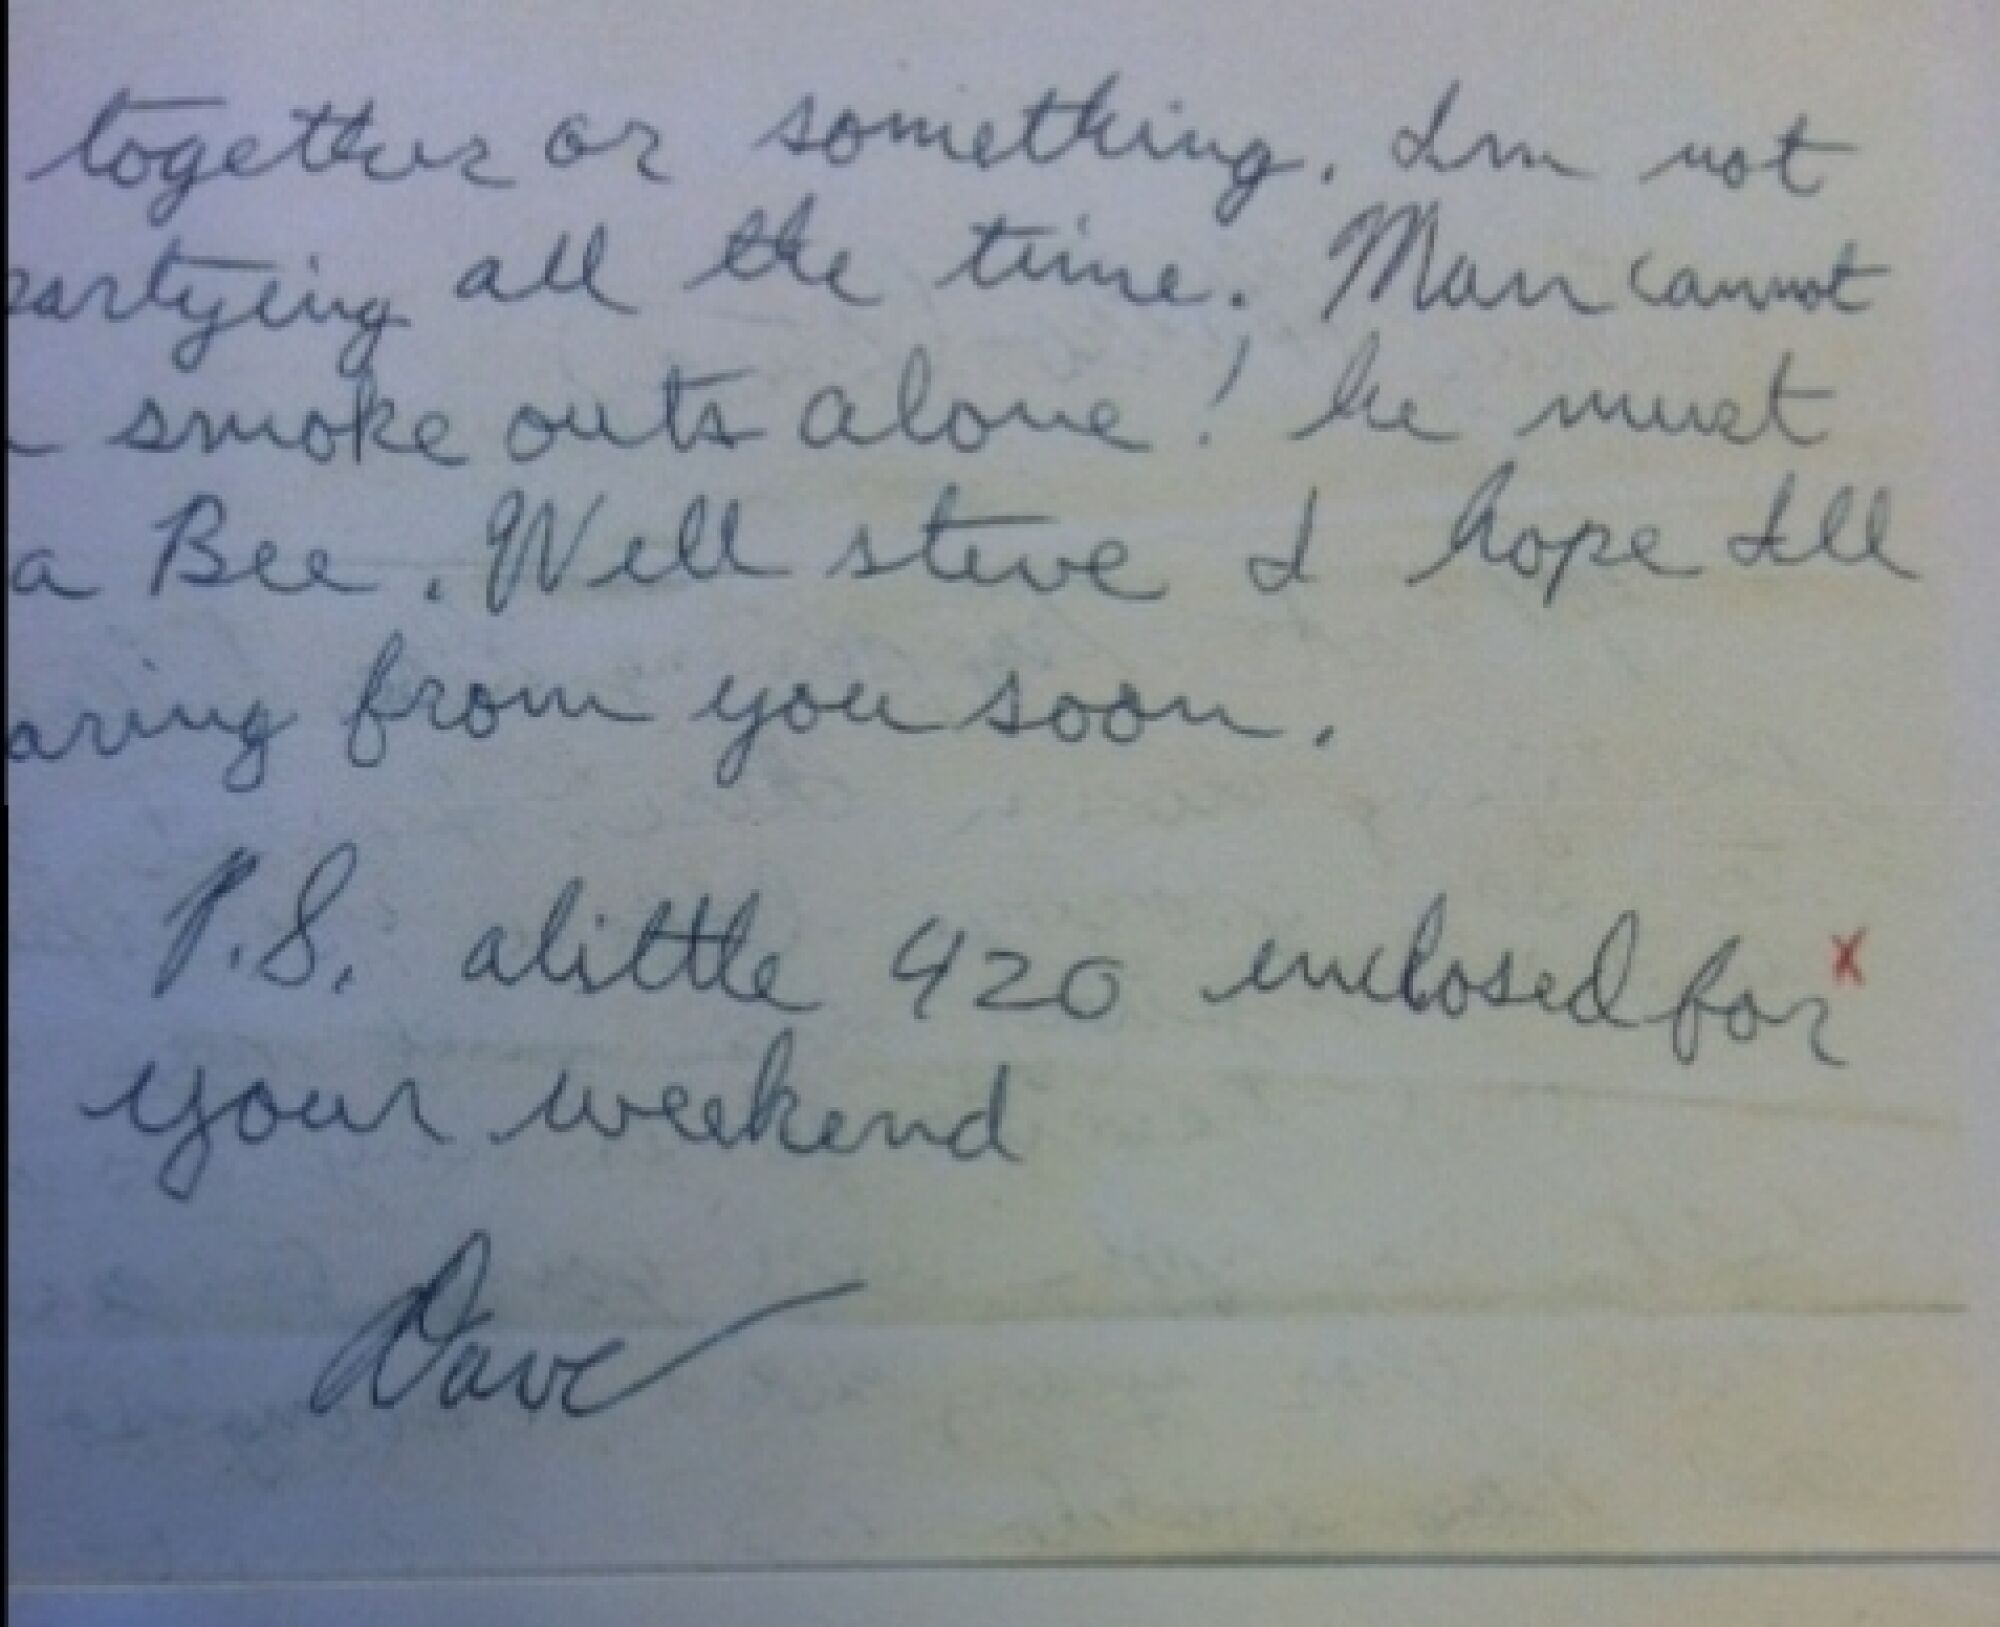 together or something. Im not
partying all the time. Man cannot
smoke outs alone! he must
a Bee. Well steve I hope Ill
aring from you soon.
P.S. alittle 420 enclosed for x
your weekend
Dave